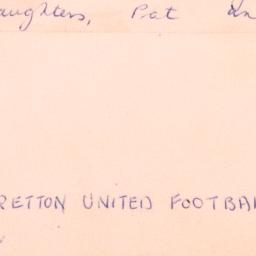 aughters, Pat
RETTON UNITED FOOTBA